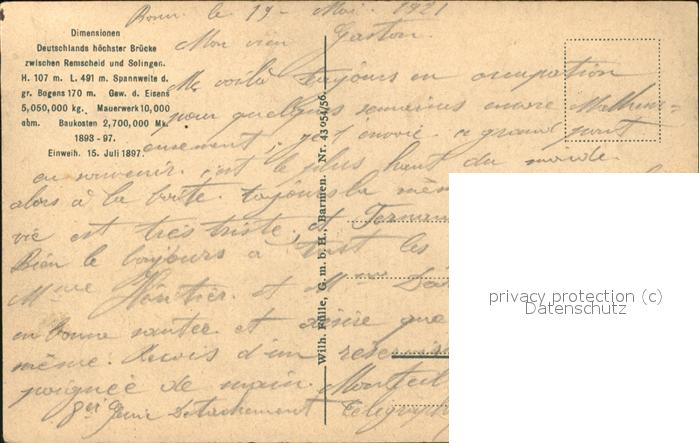 Dimensionen
Deutschlands höchster Brücke
zwischen Remscheid und Solingen.
H. 107 m. L. 491 m. Spannweite d.
gr. Bogens 170 m. Gew. d. Eisens
5,050,000 kg. Mauerwerk 10,000
cbm. Baukosten 2,700,000 Mk.
1893-97.
Einweih. 15. Juli 1897.
Wilh. Fülle, G. m. b. H., Barmen. Nr. 43054/56.
Bonn. le 19 - Mai. 1921
Mon vieux Gaston.
Me voilà toujours en occupation
pour quelques semaines encore Malheur-
eusement, je t'envoie ce grand pont
en souvenir. c'est le plus haut du monde.
alors à la boite. toujours la même
vie est très triste, et
Bien le bonjours à tout les
Mme et Mme
en bonne santée et désire que
même. Reçois d'un
poignée de main.
8e Génie Détachement
privacy protection (c)
Datenschutz